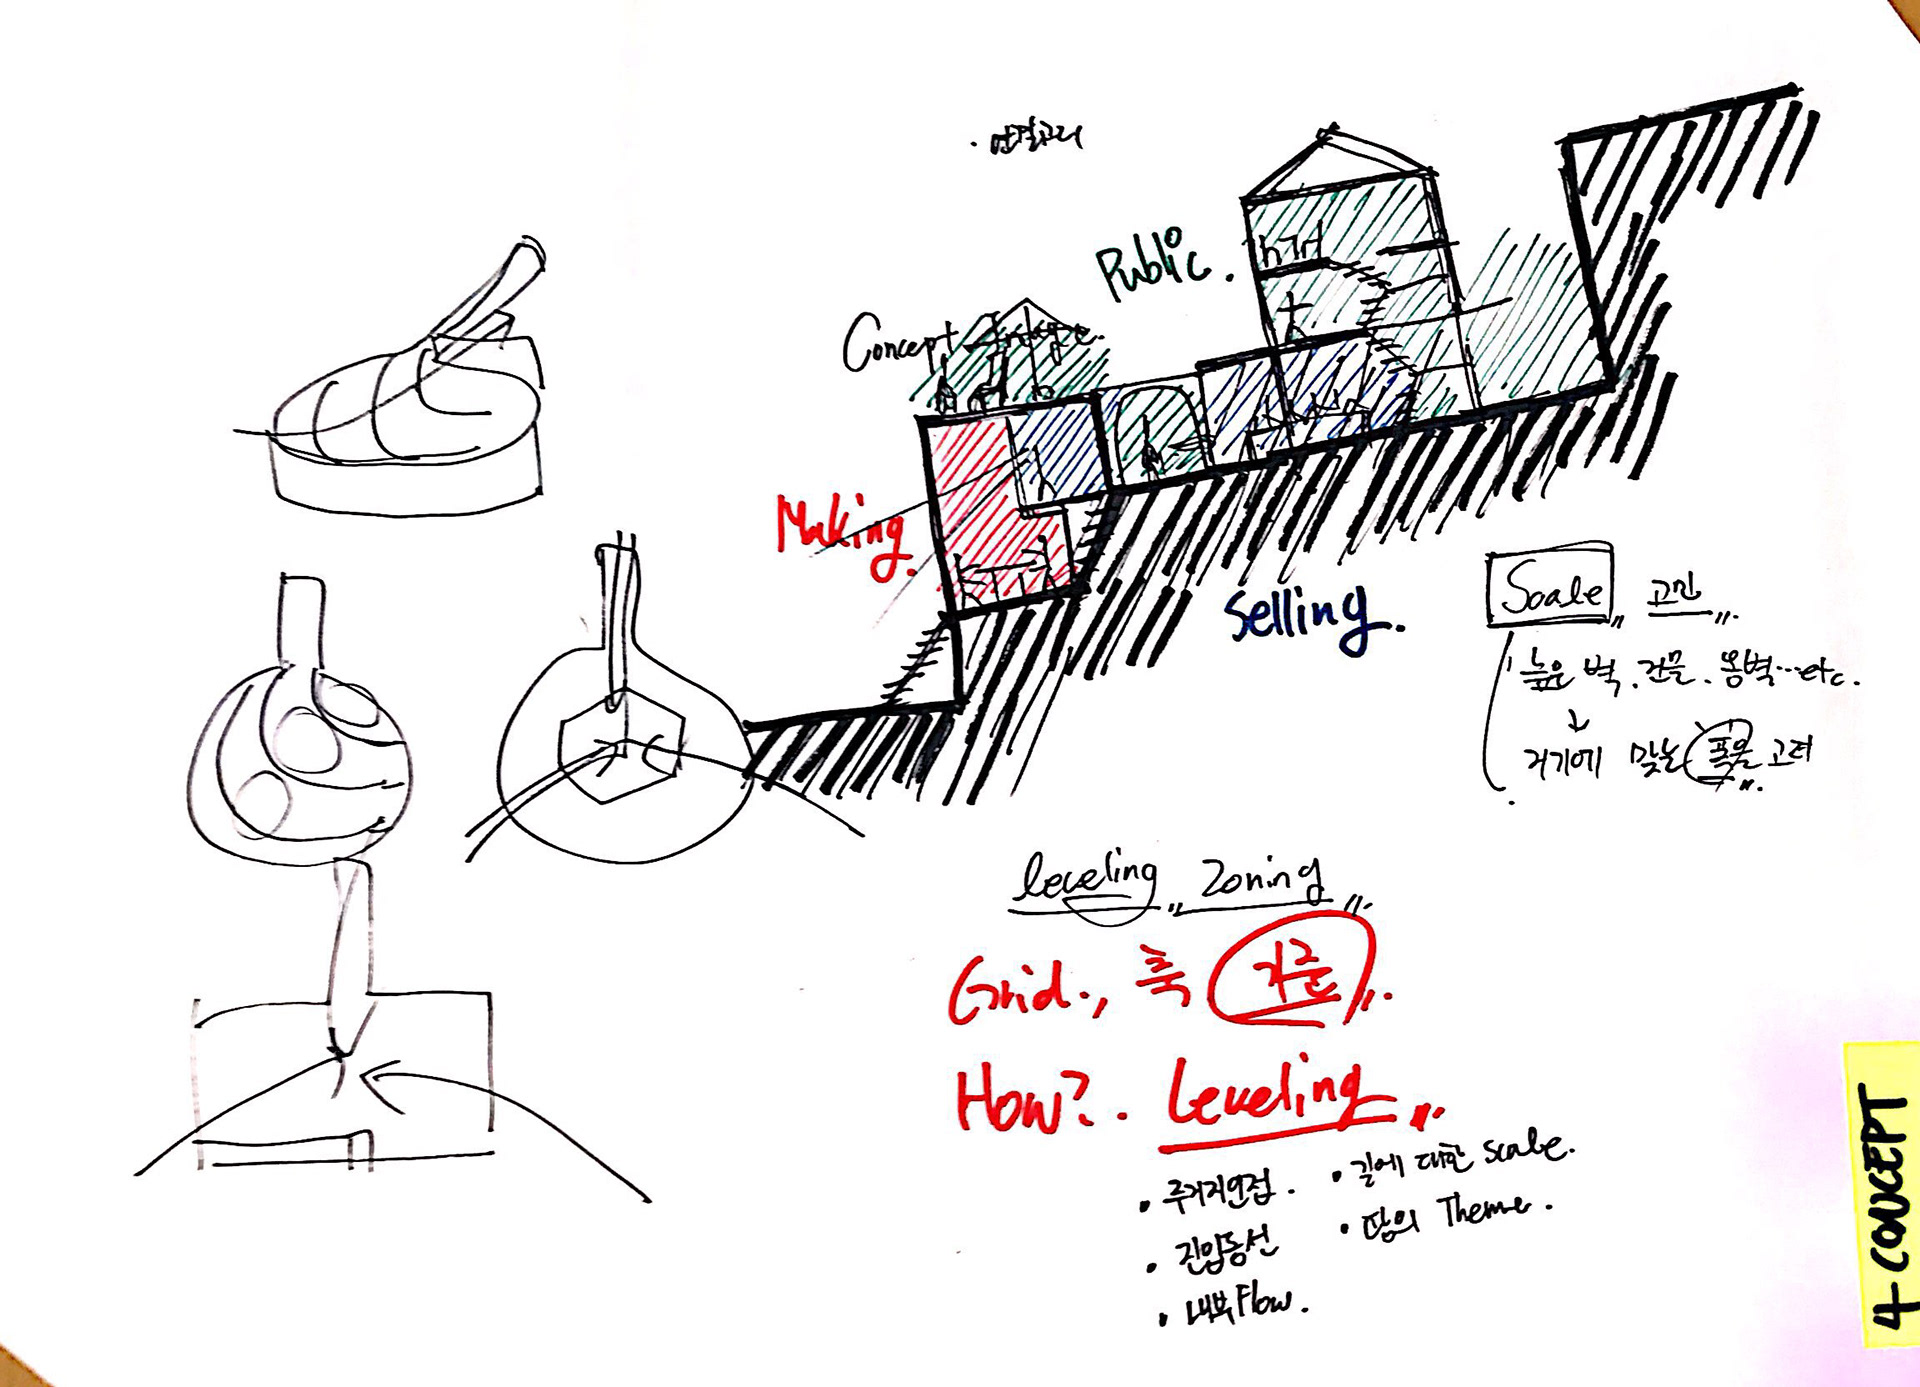 · 연결고리
Public.
Concept Image.
Making.
Selling.
Scale 고민
높은 벽. 건물. 옹벽...etc.
↓
거기에 맞는 폭을 고려
leveling, Zoning
Grid., 축 기준.
How?. Leveling
· 주거지인접.
· 길에 대한 scale.
· 진입동선
· 땅의 Theme.
· 내부Flow.
4 CONCEPT